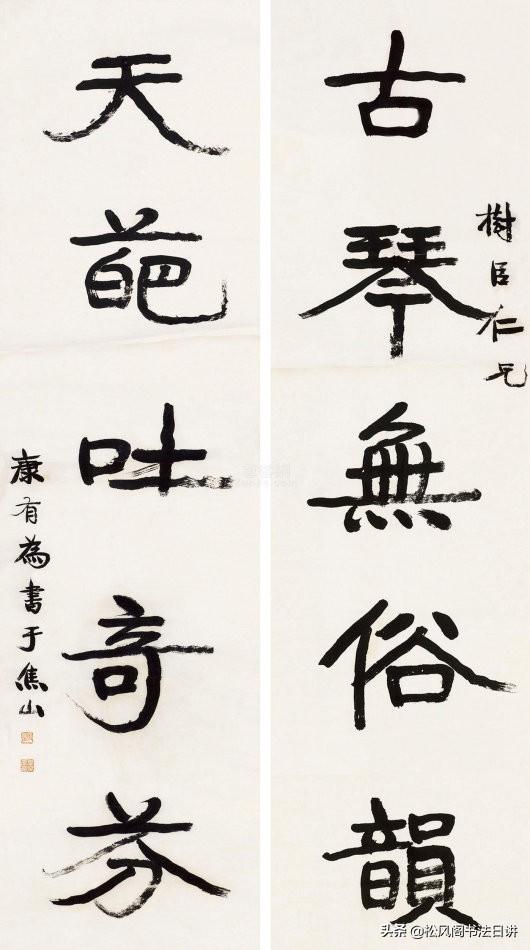 樹臣仁兄
古琴無俗韻
天葩吐奇芬
康有為書于焦山
头条 @松风阁书法日讲